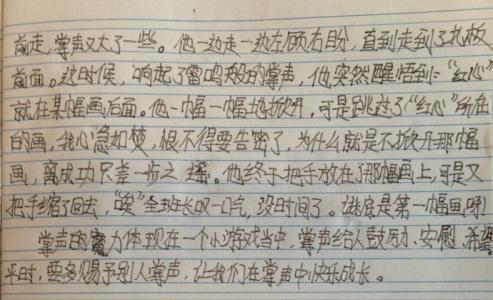 前走,掌声又大了一些。他一边走一边左顾右盼,直到走到了扎板
前面。这时候,响起了雷鸣般的掌声,他突然醒悟到:“红心”
就在某幅画后面。他一幅一幅地掀开,可是跳过了“红心”所在
的画,我心急如焚,恨不得要告密了,为什么就是不掀开那幅
画,离成功只差一布之摇。他终于把手放在了那幅画上,可是又
把手缩了回去,“唉”全班长叹一口气,没时间了。谜底是第一幅画呀!
掌声的魔力体现在一个小游戏当中,掌声给人鼓励、安慰、希望
平时,要多赐予别人掌声,让我们在掌声中快乐成长。